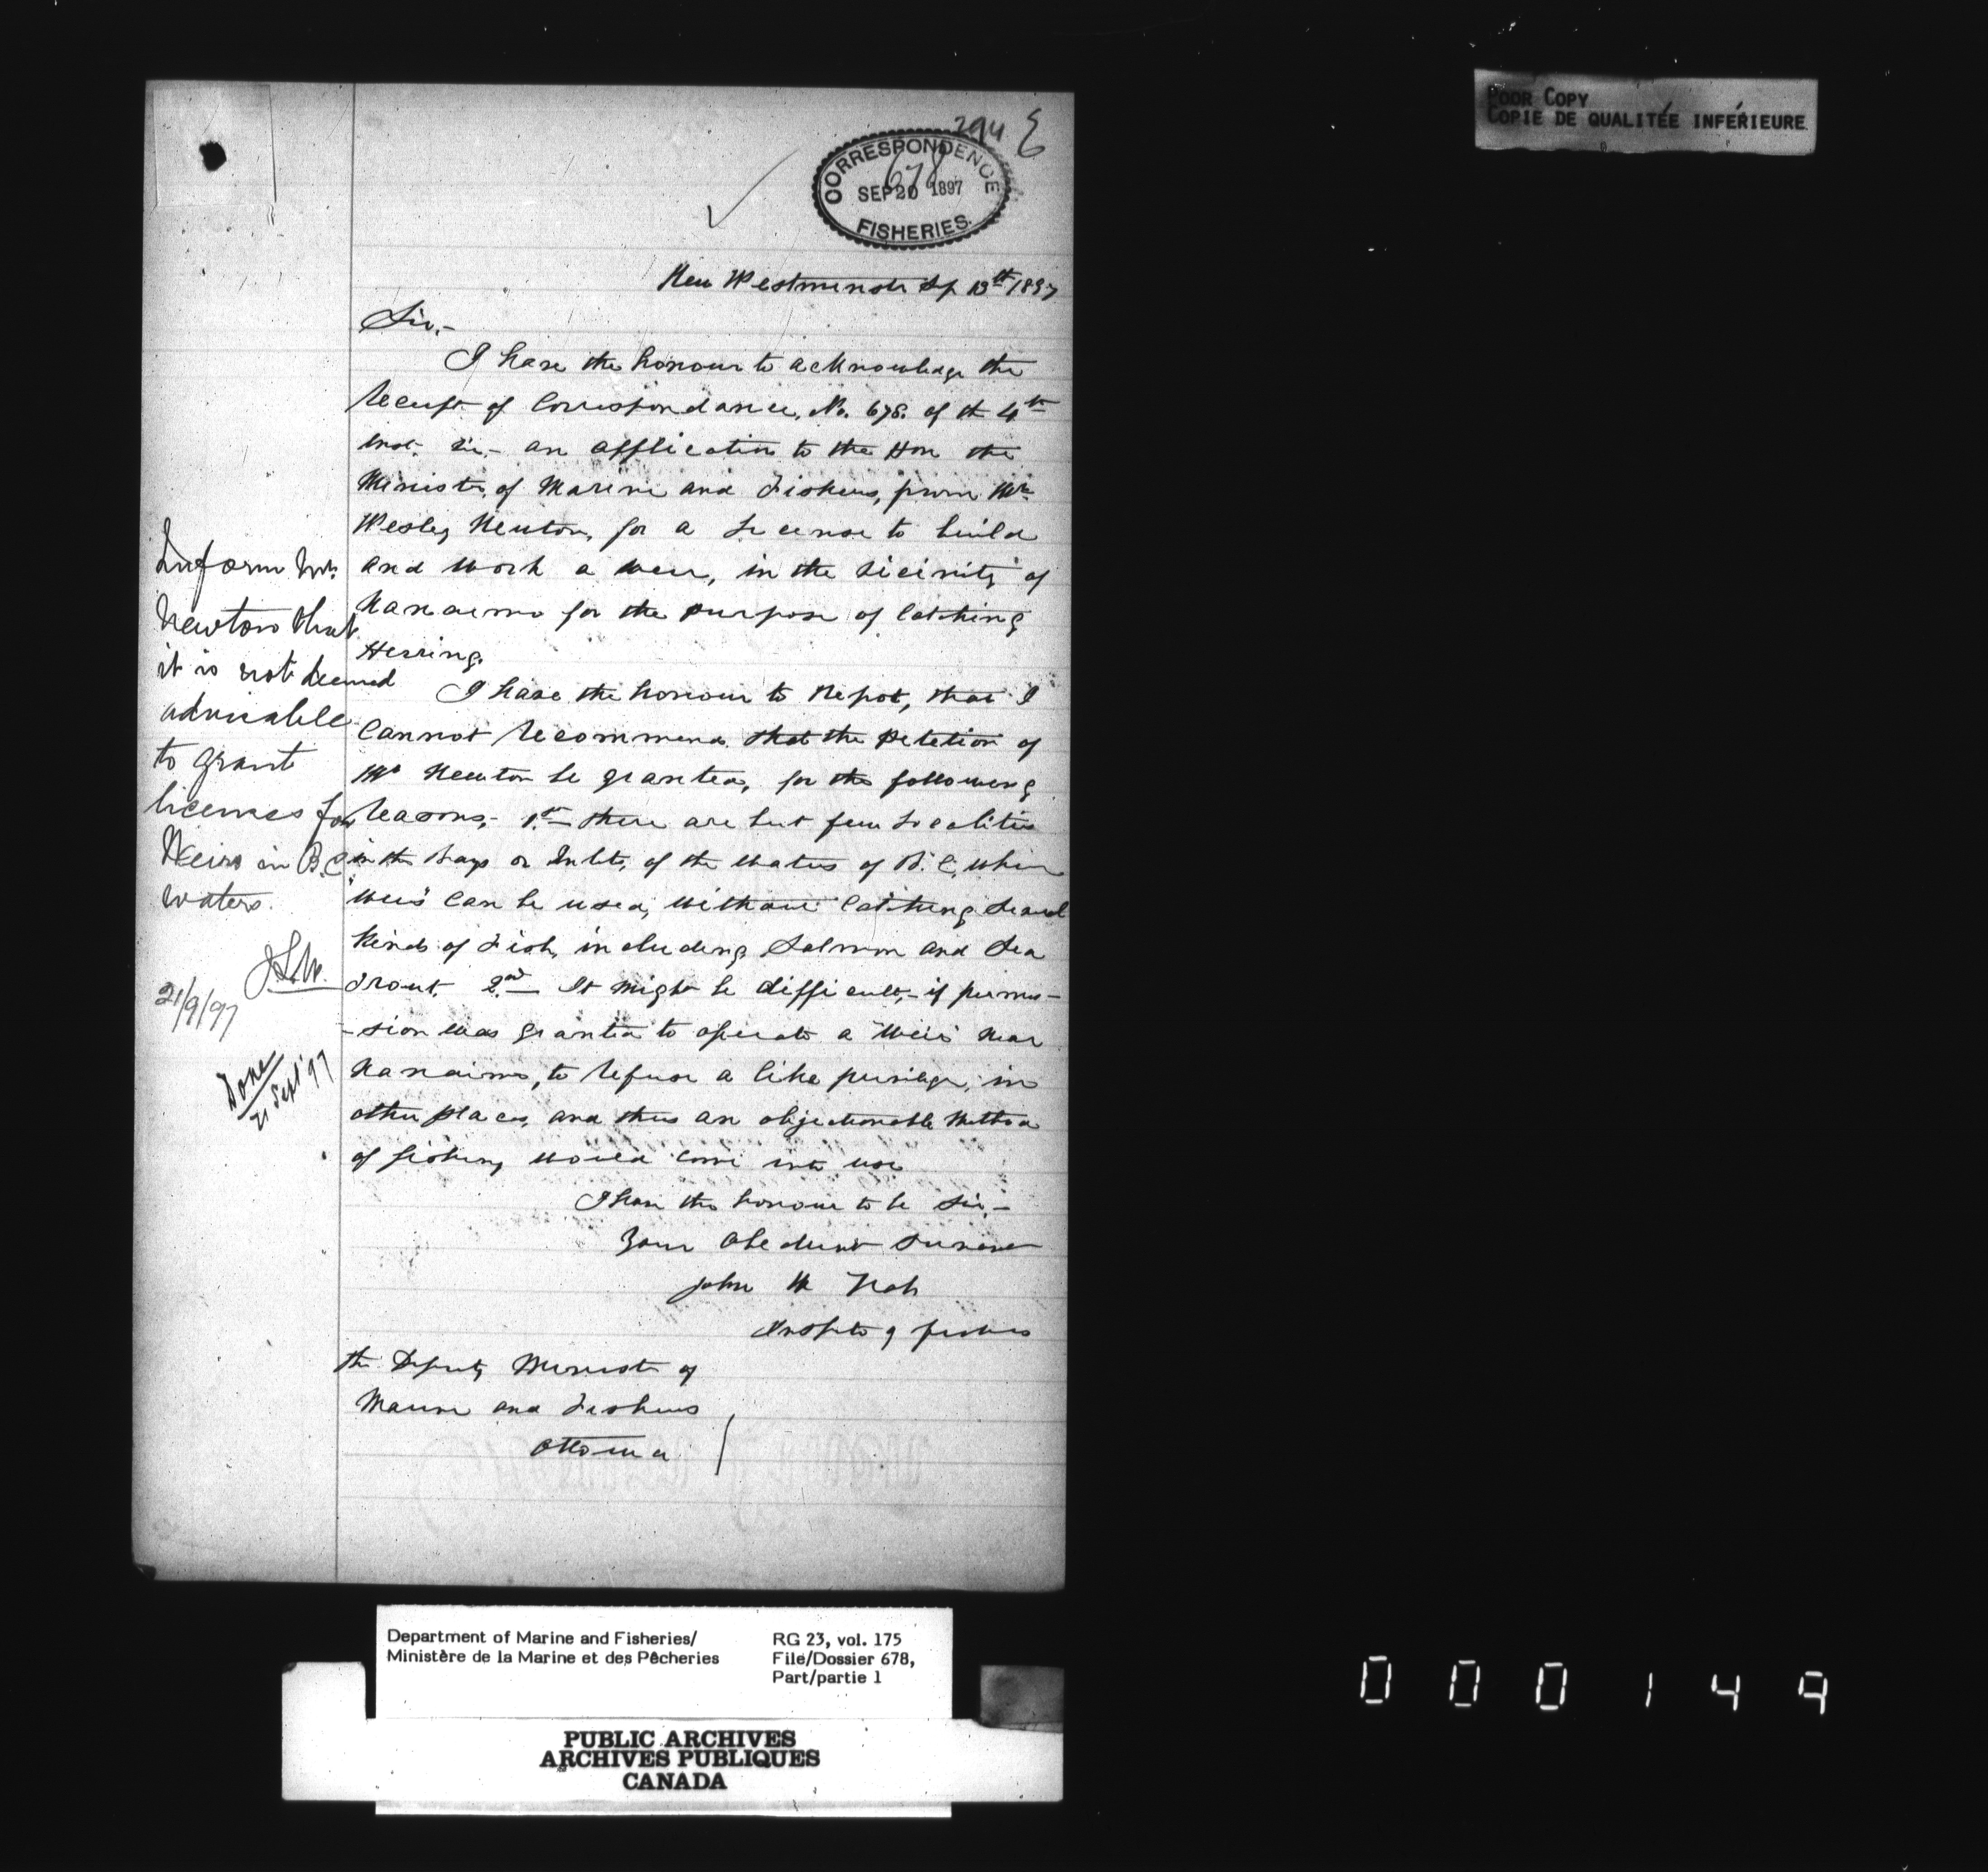 POOR COPY
COPIE DE QUALITÉE INFÉRIEURE
294 E
CORRESPONDENCE
678
SEP 20 1897
FISHERIES.
New Westminster Sep 13th 1897
Sir,-
I have the honour to acknowledge the
receipt of Correspondance, No. 678. of the 4th
inst. viz,- an application to the Hon the
Minister, of Marine and Fisheries, from Mr
Wesley Newton, for a License to build
and work a weir, in the vicinity of
Nanaimo for the purpose of Catching
Herring.
I have the honour to Report, that I
Cannot recommend that the Petetion of
Mr Newton be granted, for the following
reasons;- 1st there are but few Localities
in the Bays or Inlets, of the Waters of B.C. where
"Weirs" Can be used, without Catching several
Kinds of Fish, including Salmon and Sea
Trout. 2nd It might be difficult,- if permis-
-sion was granted to operate a "Weir" near
Nanaimo, to refuse a like privilege, in
other places, and thus an objectionable Method
of fishing would Come into use
I have the honour to be Sir,-
Your Obedient Servant
John W
Inspector of fisheries
The Deputy Minister of
Marine and Fisheries
Ottawa
Inform Mr.
Newton that
it is not deemed
advisable
to grant
licenses for
Weirs in B.C.
waters.
21/9/97
Done
21 Sept '97
Department of Marine and Fisheries/
Ministère de la Marine et des Pêcheries
RG 23, vol. 175
File/Dossier 678,
Part/partie 1
PUBLIC ARCHIVES
ARCHIVES PUBLIQUES
CANADA
000149